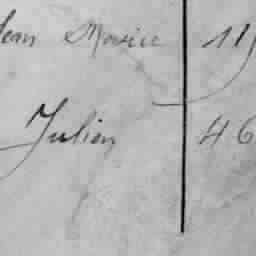 Jean Movice 119
Julien 46